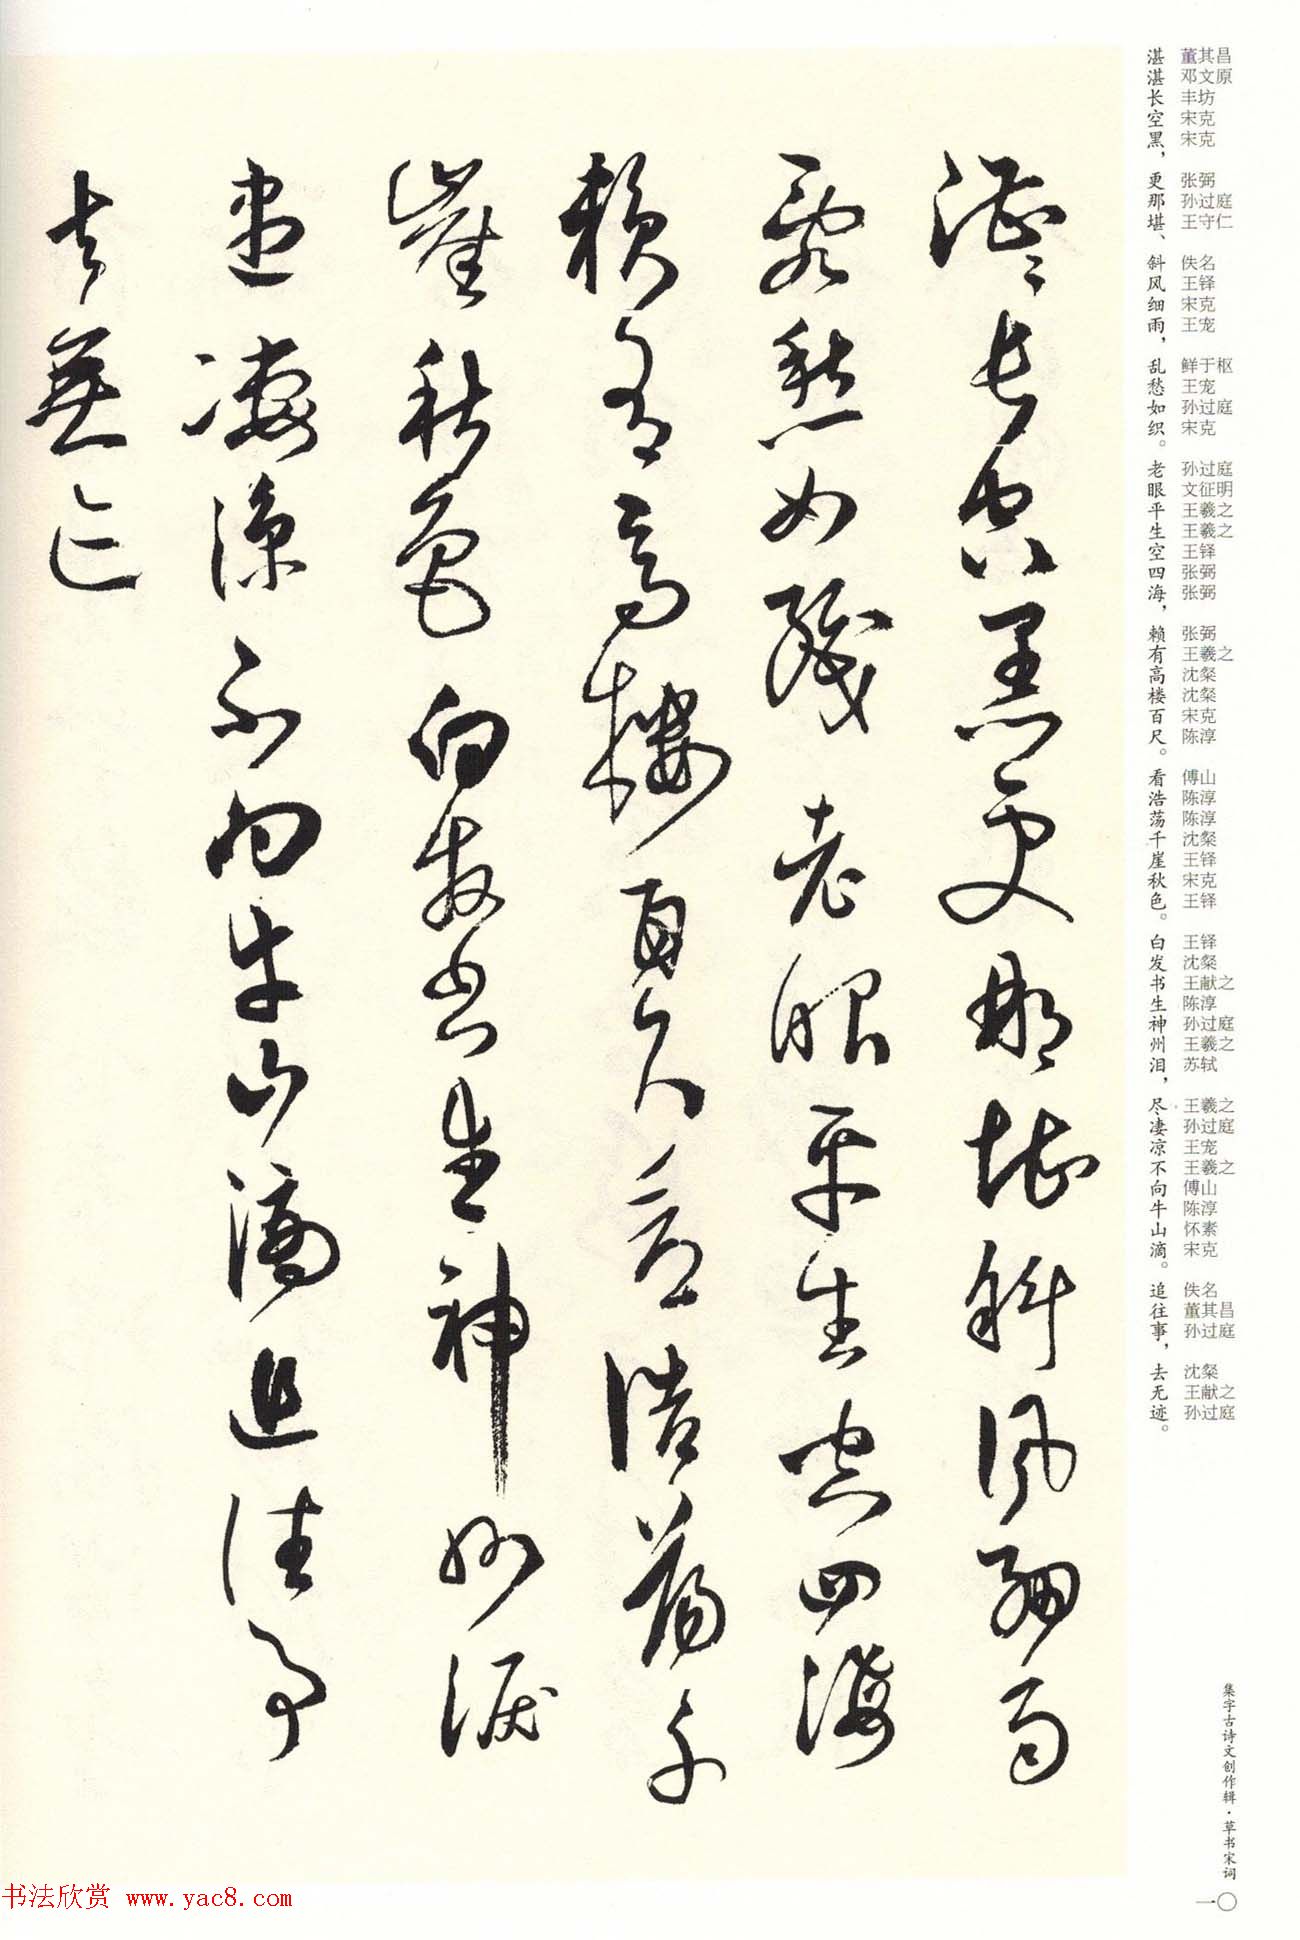 董其昌 邓文原 丰坊 宋克 宋克 张弼 孙过庭 王守仁 佚名 王铎 宋克 王宠 鲜于枢 王宠 孙过庭 宋克 孙过庭 文征明 王羲之 王羲之 王铎 张弼 张弼 张弼 王羲之 沈粲 沈粲 宋克 陈淳 傅山 陈淳 陈淳 沈粲 王铎 宋克 王铎 王铎 沈粲 王献之 陈淳 孙过庭 王羲之 苏轼 王羲之 孙过庭 王宠 王羲之 傅山 陈淳 怀素 宋克 佚名 董其昌 孙过庭 沈粲 王献之 孙过庭
湛湛长空黑，更那堪、斜风细雨，乱愁如织。老眼平生空四海，赖有高楼百尺。看浩荡千崖秋色。白发书生神州泪，尽凄凉不向牛山滴。追往事，去无迹。
湛湛長空黑更那堪斜風細雨
亂愁如織老眼平生空四海
賴有高樓百尺看浩蕩千
崖秋色白髮書生神州淚
盡凄涼不向牛山滴追往事
去無迹
集字古诗文创作辑·草书宋词
一〇
书法欣赏 www.yac8.com